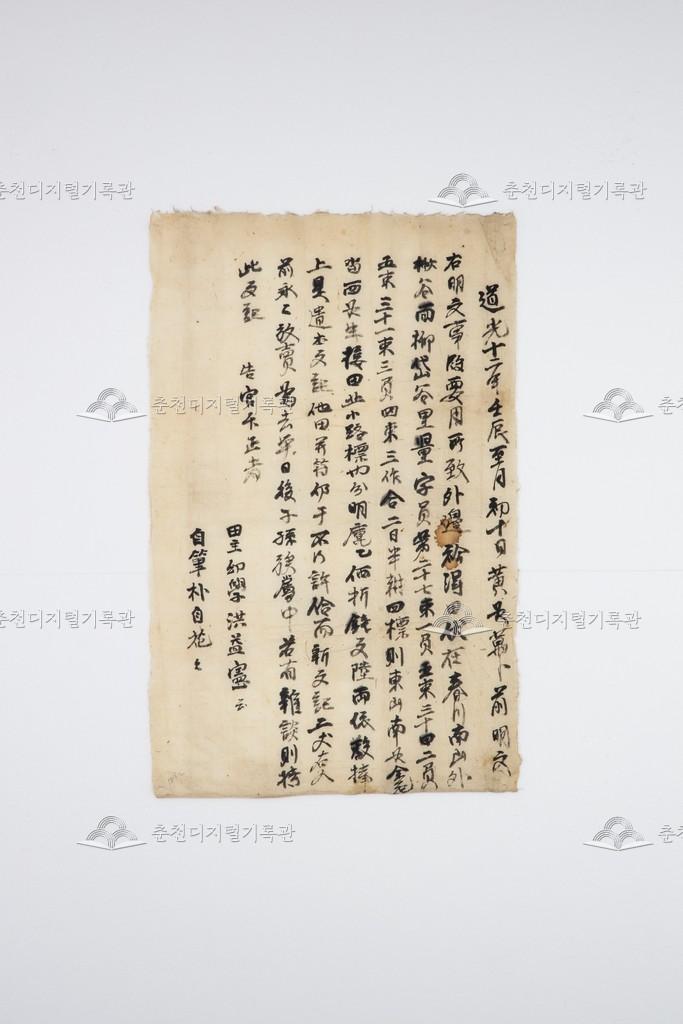 道光十二年壬辰至月初十日黃 前明文
右明文事段要用所致外邊衿得田伏在春川南山外
楸谷雨柳岱谷里量字員第二十七東一員五東三十四二員
五束三十一東三員四束三作合二日半耕四標則東山南
西 生 接田北小路標內分明庫乙価折錢文陸兩依數捧
上是遣本文記他田幷符仍于不得許給而新文記一丈
前永永放賣爲去乎日後子孫族屬中若有雜談則持
此文記 告官卞正者
田主幼學洪益憲
自筆朴自花
춘천디지털기록관
춘천디지털기록관
춘천디지털기록관
춘천디지털기록관
춘천디지털기록관
춘천디지털기록관